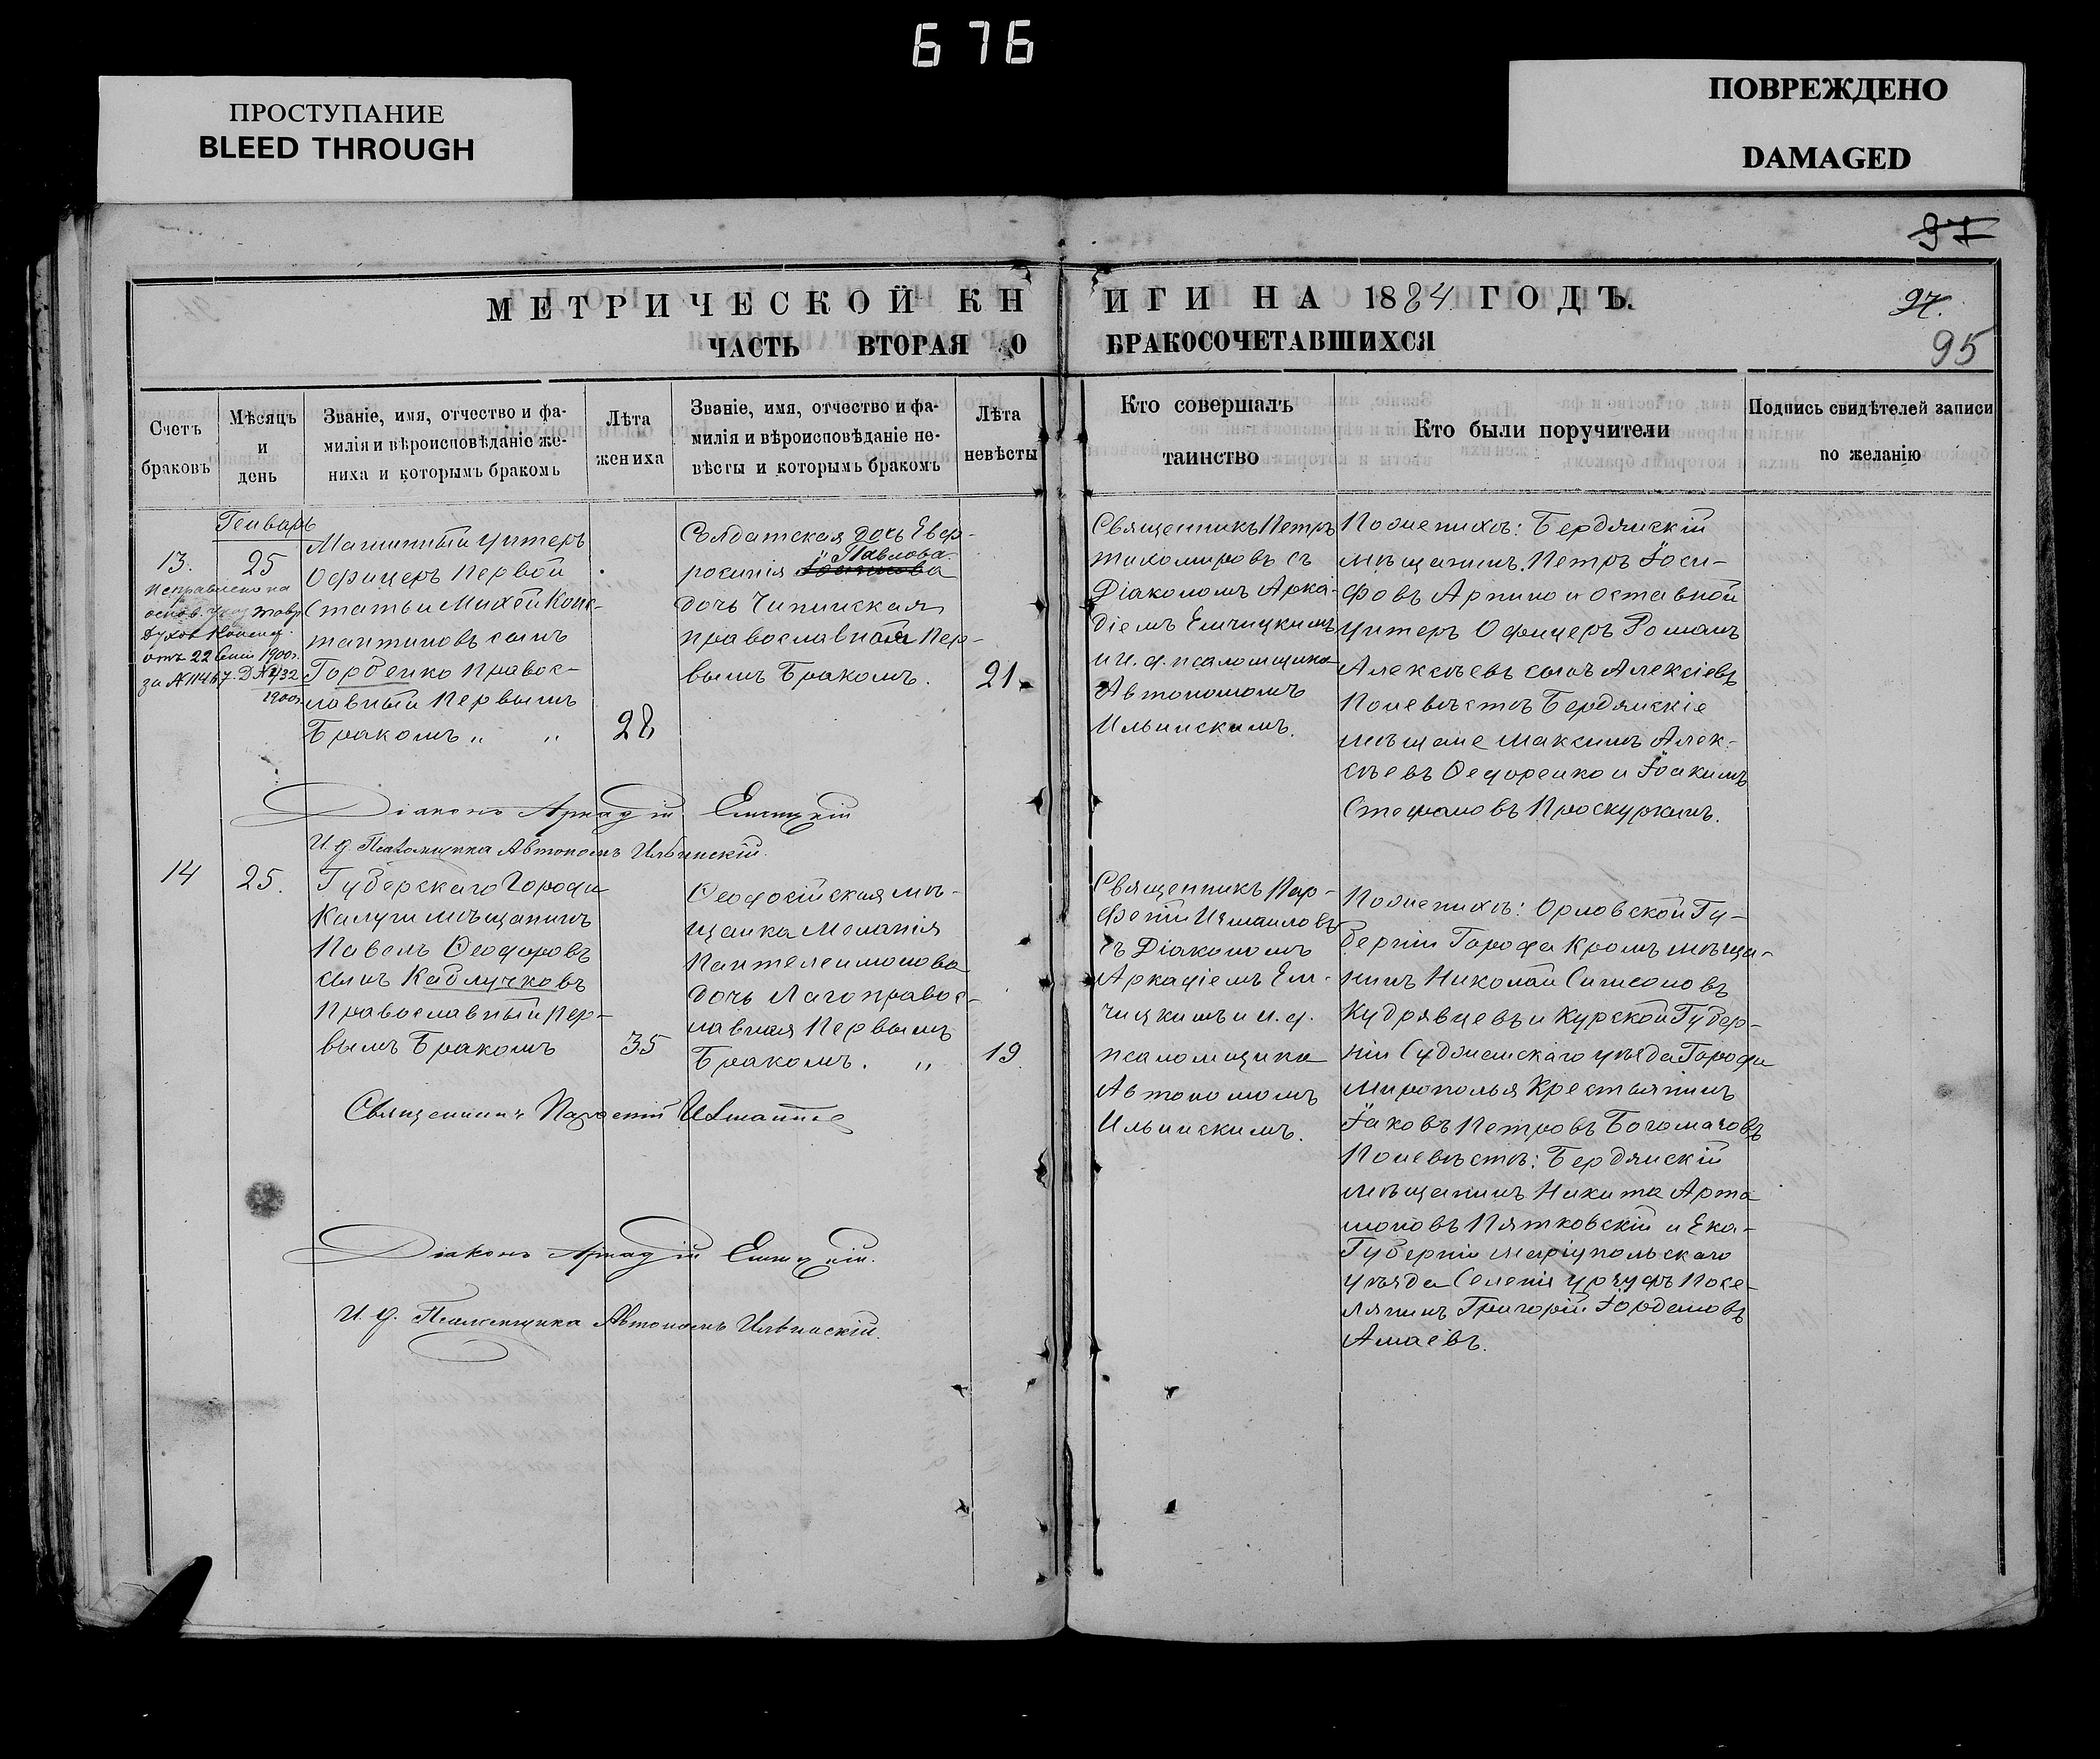 676
ПРОСТУПАНИЕ
BLEED THROUGH
ПОВРЕЖДЕНО
DAMAGED
97
МЕТРИЧЕСКОЙ КНИГИ НА 1884 ГОДЪ.
97.
ЧАСТЬ ВТОРАЯ О БРАКОСОЧЕТАВШИХСЯ
95
Счетъ
браковъ
Мѣсяцъ
и
день
Званіе, имя, отчество и фа-
милія и вѣроисповѣданіе же-
ниха и которымъ бракомъ
Лѣта
жениха
Званіе, имя, отчество и фа-
милія и вѣроисповѣданіе не-
вѣсты и которымъ бракомъ
Лѣта
невѣсты
Кто совершалъ
таинство
Кто были поручители
Подпись свидѣтелей записи
по желанію
Генварь
13.
25
Исправлено на
основ. указ Тавр
Духов Консис.
отъ 22 1900г.
за №11467. Д №432
1900г.
Машинный Унтеръ
Офицеръ Первой
Статьи Михей Конс-
тантиновъ сынъ
Горбенко Правос-
лавный Первымъ
Бракомъ „ „
28
Солдатская дочь Евф-
Павлова
росинія
дочь Чипинская
православная Пер-
вымъ Бракомъ.
21.
Священникъ Петръ
Тихомировъ съ
Діакономъ Арка-
діемъ Емчицкимъ
и и. д. псаломщика
Автономомъ
Ильинскимъ.
По женихѣ: Бердянскій
мѣщанинъ Петръ Іоси-
фовъ Арпино и оставной
Унтеръ Офицеръ Романъ
Алексѣевъ сынъ Алексіевъ
По невѣстѣ Бердянскіе
мѣщане Максимъ Алек-
сѣевъ Ѳедоренко и Іоакимъ
Стефановъ Проскуркинъ.
Діаконъ Аркадій Емчицкій
И. д. Псаломщика Автономъ Ильинскій.
14
25.
Губерскаго Города
Калуги мѣщанинъ
Павелъ Ѳеодоровъ
сынъ Кадлучковъ
Православный Пер-
вымъ Бракомъ
35
Ѳеодосійская мѣ-
щанка Меланія
Пантелеимонова
дочь Лаго правос-
лавная Первымъ
Бракомъ. „
19.
Священникъ Пар-
феній Измаиловъ
съ Діакономъ
Аркадіемъ Ем-
чицкимъ и и. д.
псаломщика
Автономомъ
Ильинскимъ.
По женихѣ: Орловской Гу-
берніи Города Кромъ мѣща-
нинъ Николай Симеоновъ
Кудрявцевъ и Курской Губер-
ніи Суджанскаго уѣзда Города
Мирополья Крестьянинъ
Іаковъ Петровъ Богомазовъ
По невѣстѣ: Бердянскій
мѣщанинъ Никита Арта
моновъ Пятковскій и Ека-
Губерніи Маріупольскаго
уѣзда Селенія Урзуфъ Посе-
лянинъ Григорій Іордановъ
Амаевъ.
Священникъ Парфеній Измаиловъ
Діаконъ Аркадій Емчицкій.
И. д. Псаломщика Автономъ Ильинскій.